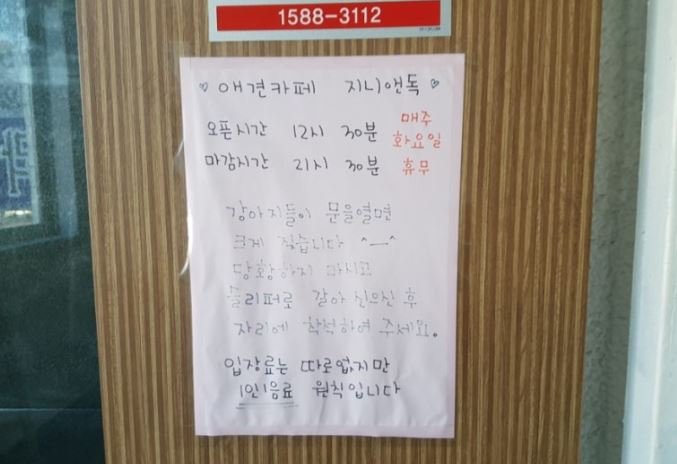 1588-3112
♡ 애견카페 지니앤독 ♡
오픈시간 12시 30분 매주 화요일
마감시간 21시 30분 휴무
강아지들이 문을열면
크게 짖습니다 ^ㅡ^
당황하지 마시고
슬리퍼로 갈아 신으신 후
자리에 착석하여 주세요.
입장료는 따로없지만
1인1음료 원칙입니다